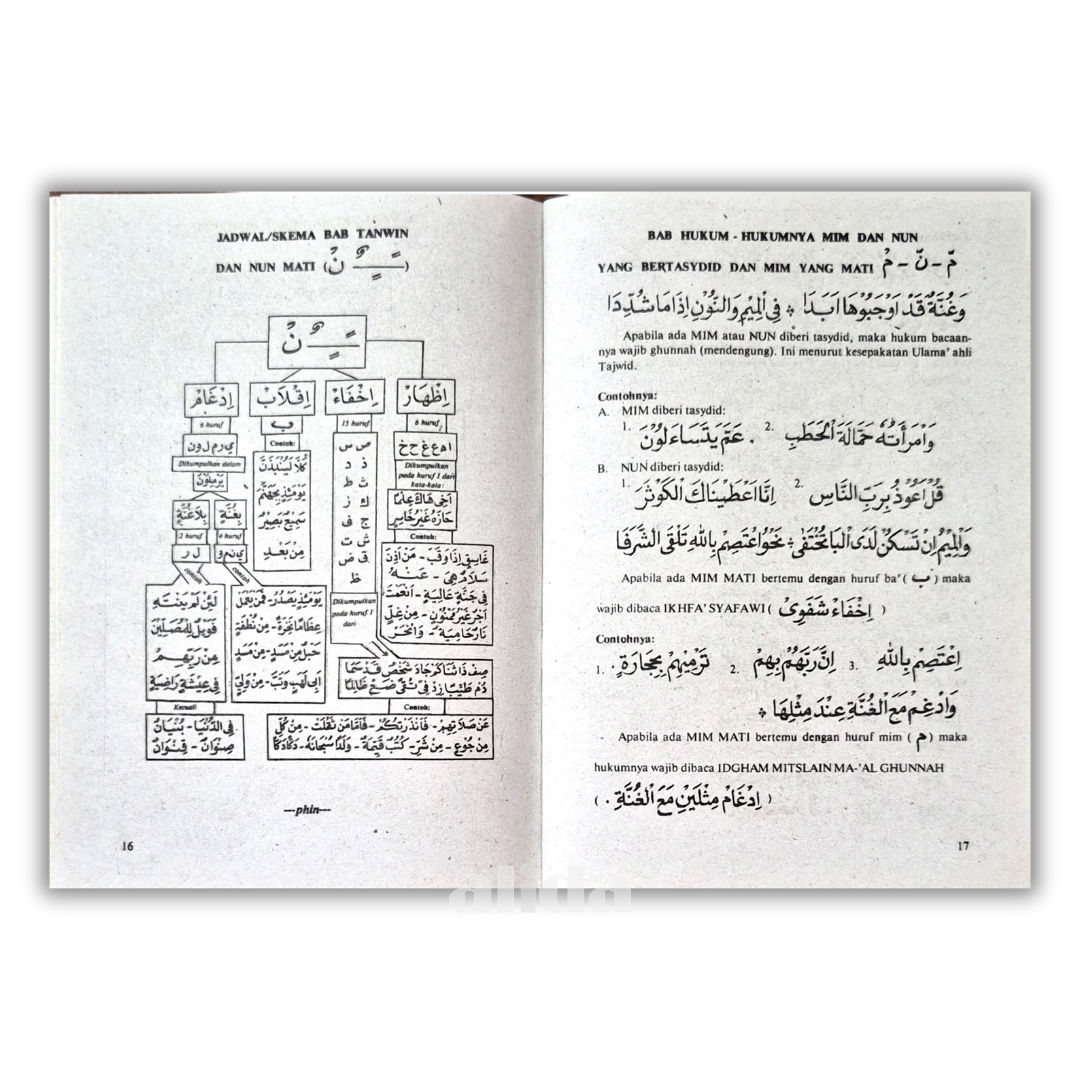 JADWAL/SKEMA BAB TANWIN
DAN NUN MATI (ـًـٍـٌ نْ)
ـًـٍـٌ نْ
اِظْهَارْ
اِخْفَاءْ
اِقْلَابْ
اِدْغَامْ
6 huruf
ا ه ع غ ح خ
Dikumpulkan
pada huruf 1 dari
kata-kata:
اَخِى هَاكَ عِلْمًا
حَازَهُ غَيْرُ خَاسِرٍ
Contoh:
غَاسِقٍ اِذَا وَقَبَ - مَنْ اٰذِنَ
سَلَامٌ هِيَ - عَنْهُ
فِى جَنَّةٍ عَالِيَةٍ - اَنْعَمْتَ
اَجْرٌ غَيْرُ مَمْنُوْنٍ - مِنْ غِلٍّ
نَارٌ حَامِيَةٌ - وَانْحَرْ
15 huruf
ص س
ذ د
ث ط
ك ز
ج ف
ش ت
ق ض
ظ
Dikumpulkan
pada huruf 1
dari
صِفْ ذَا ثَنَا كَمْ جَادَ شَخْصٌ قَدْ سَمَا
دُمْ طَيِّبًا زِدْ فِى تُقًى ضَعْ ظَالِمًا
Contoh:
عَنْ صَلَاتِهِمْ - فَاَنْذَرْتُكُمْ - فَاَمَّا مَنْ ثَقُلَتْ - مِنْ كُلِّ
مِنْ جُوْعٍ - مِنْ شَرِّ - كُتُبٌ قَيِّمَةٌ - وَلَدًا سُبْحَانَهُ - دَكًّا دَكًّا
ب
Contoh:
كَلَّا لَيُنْبَذَنَّ
يَوْمَئِذٍ بِجَهَنَّمَ
سَمِيْعٌ بَصِيْرٌ
مِنْ بَعْدِ
6 huruf
ي ر م ل و ن
Dikumpulkan dalam
يَرْمِلُوْنَ
بِغُنَّةٍ
بِلَاغُنَّةٍ
4 huruf
2 huruf
ي ن م و
ل ر
contoh
contoh
يَوْمَئِذٍ يَصْدُرُ - فَمَنْ يَعْمَلْ
عِظَامًا نَخِرَةً - مِنْ نُطْفَةٍ
حَبْلٌ مِنْ مَسَدٍ - مِنْ مَسَدٍ
اَبِى لَهَبٍ وَتَبَّ - مِنْ وَلِيٍّ
لَئِنْ لَمْ يَنْتَهِ
فَوَيْلٌ لِلْمُصَلِّيْنَ
مِنْ رَبِّهِمْ
فِى عِيْشَةٍ رَاضِيَةٍ
Kecuali
فِى الدُّنْيَا - بُنْيَانٌ
صِنْوَانٌ - قِنْوَانٌ
---phin---
16
BAB HUKUM - HUKUMNYA MIM DAN NUN
YANG BERTASYDID DAN MIM YANG MATI مّ - نّ - مْ
وَغُنَّةٌ قَدْ اَوْجَبُوْهَا اَبَدَا ÷ فِى الْمِيْمِ وَالنُّوْنِ اِذَا مَا شُدِّدَا
Apabila ada MIM atau NUN diberi tasydid, maka hukum bacaan-
nya wajib ghunnah (mendengung). Ini menurut kesepakatan Ulama' ahli
Tajwid.
Contohnya:
A. MIM diberi tasydid:
1. عَمَّ يَتَسَاءَلُوْنَ . 2. وَامْرَأَتُهُ حَمَّالَةَ الْحَطَبِ
B. NUN diberi tasydid:
1. اِنَّا اَعْطَيْنَاكَ الْكَوْثَرَ 2. قُلْ اَعُوْذُ بِرَبِّ النَّاسِ
وَالْمِيْمُ اِنْ تَسْكُنْ لَدَى الْبَا تُخْتَفَى ÷ نَحْوُ اعْتَصِمْ بِاللهِ تَلْقَى الشَّرَفَا
Apabila ada MIM MATI bertemu dengan huruf ba' (ب) maka
wajib dibaca IKHFA' SYAFAWI ( اِخْفَاءْ شَفَوِىْ )
Contohnya:
1. تَرْمِيْهِمْ بِحِجَارَةٍ . 2. اِنَّ رَبَّهُمْ بِهِمْ 3. اِعْتَصِمْ بِاللهِ
وَادْغِمْ مَعَ الْغُنَّةِ عِنْدَ مِثْلِهَا ÷
- Apabila ada MIM MATI bertemu dengan huruf mim (م) maka
hukumnya wajib dibaca IDGHAM MITSLAIN MA-'AL GHUNNAH
( اِدْغَامْ مِثْلَيْنِ مَعَ الْغُنَّةِ . )
17
alida